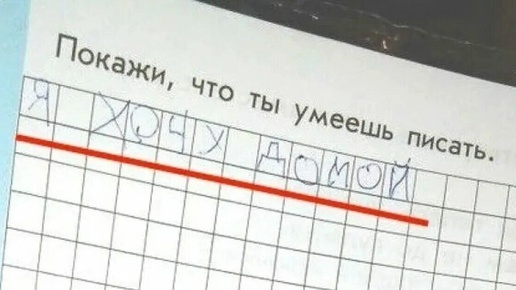 Покажи, что ты умеешь писать.
Я ХОЧУ ДОМОЙ